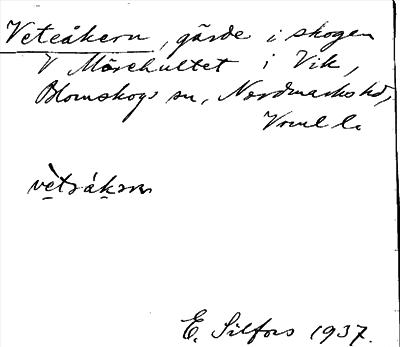 Veteåkern, gärde i skogen
V Mörehultet i Vik,
Blomskogs sn, Nordmarks hd,
Vrml l.
vètråkɐrn
E. Silfors 1937.